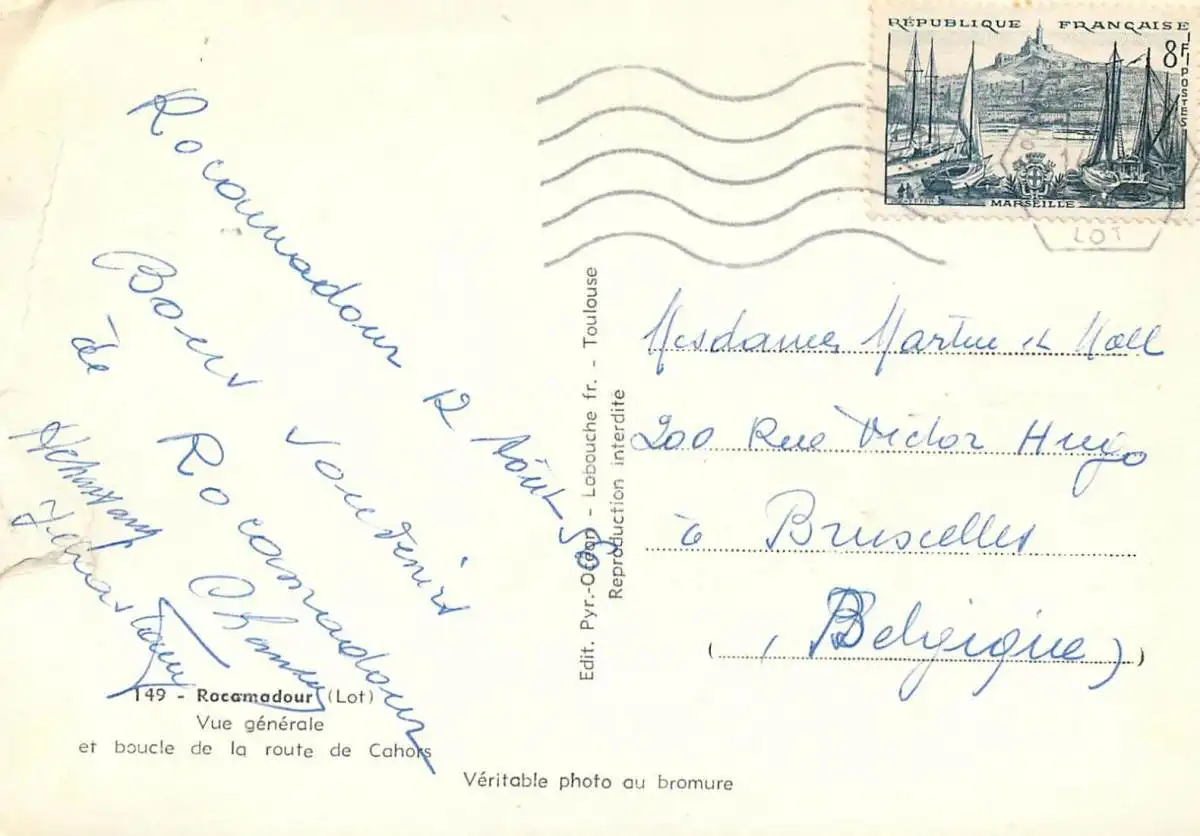 RÉPUBLIQUE FRANÇAISE
8F
POSTES
MARSEILLE
LOT
Rocamadour 12 Août
Bons Souvenirs
de Rocamadour
Mesdames Martin et Noël
200 Rue Victor Hugo
à Bruxelles
(Belgique)
Edit. Pyr.-Océan - Labouche fr. - Toulouse
Reproduction interdite
149 - Rocamadour (Lot)
Vue générale
et boucle de la route de Cahors
Véritable photo au bromure